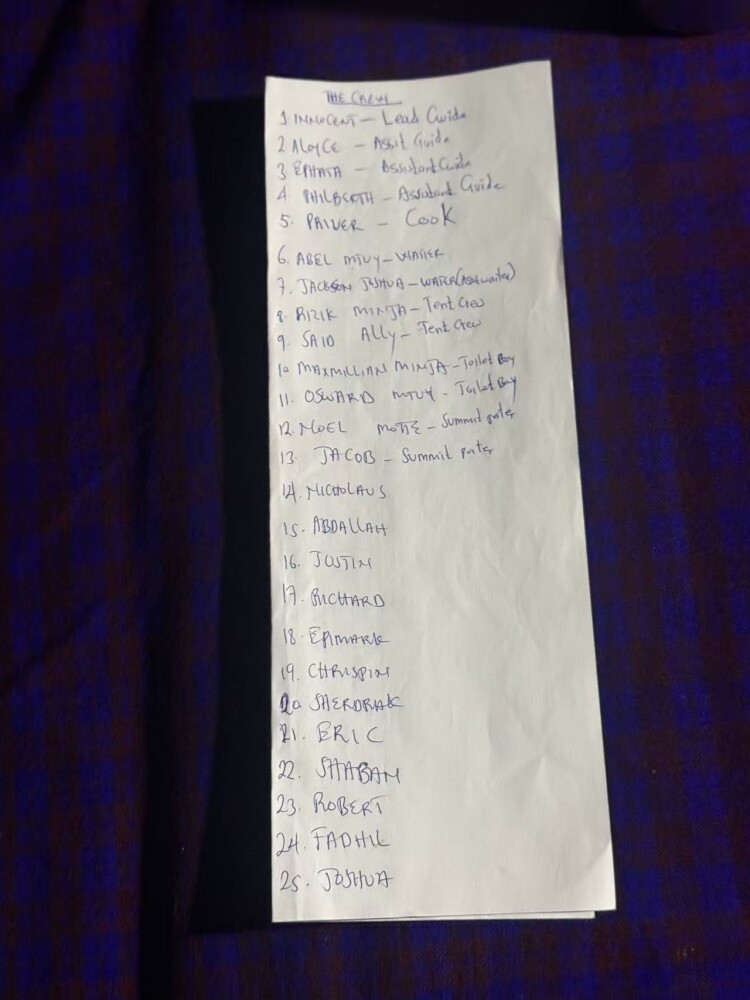 THE CREW
1 INNOCENT - Lead Guide
2 ALOYCE - Assit Guide
3 EPHATA - Assistant Guide
4 PHILBERTH - Assistant Guide
5. - COOK
6. ABEL MTUY - WAITER
7. JACKSON JOSHUA - WATER (Asst waiter)
8. RIZIK MINJA - Tent Crew
9. SAID Ally - Tent Crew
10 MAXMILLIAN MINJA - Toilet Boy
11. OSWARD MTUY - Toilet Boy
12. NOEL - Summit porter
13. JACOB - Summit porter
14. NICHOLAUS
15. ABDALLAH
16. JUSTIN
17. RICHARD
18. EPIMARK
19. CHRISPIN
20 SHERDRAK
21. ERIC
22. SHABAN
23. ROBERT
24. FADHIL
25. JOSHUA